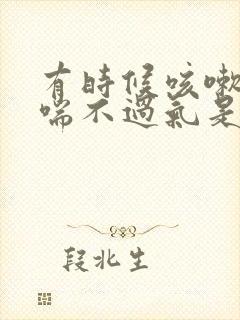 有時候咳嗽
喘不過氣是
段北生